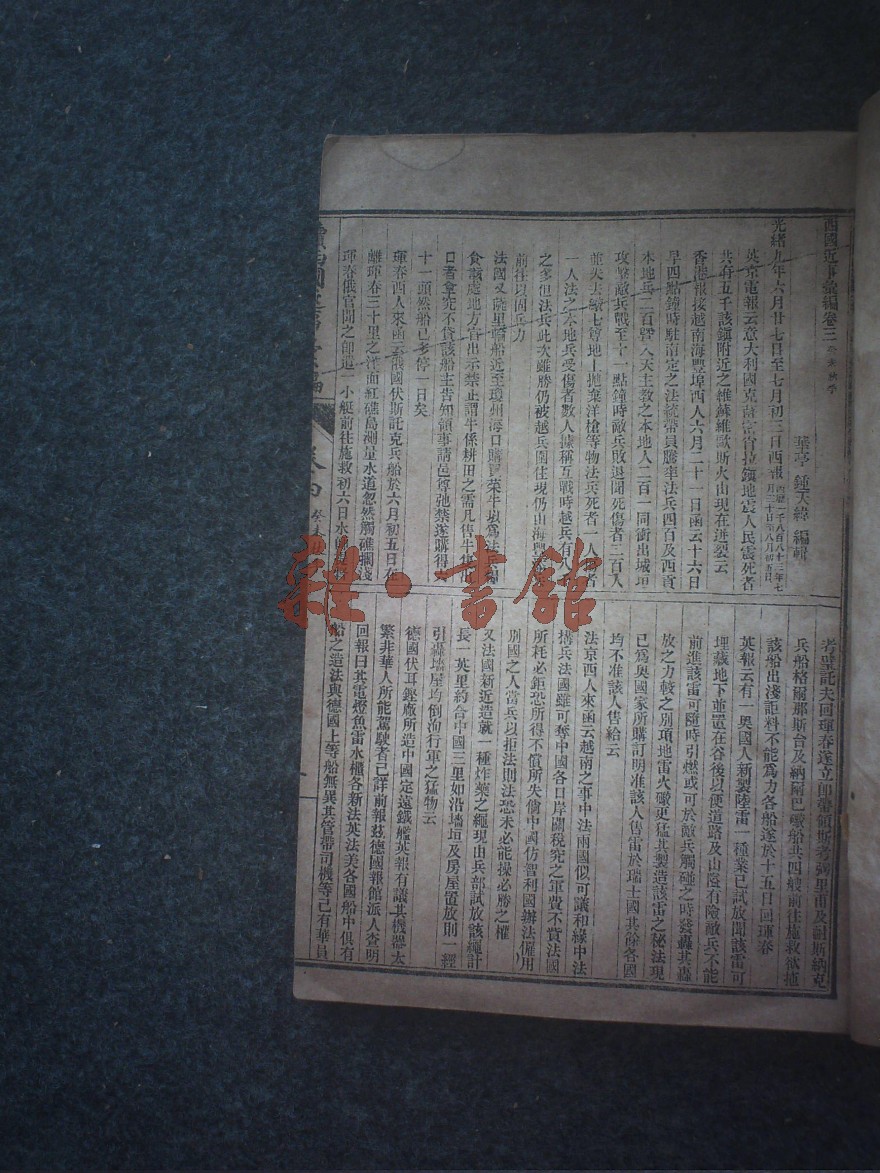 西國近事彙編卷三
華亭 鍾天緯 編輯
光緒九年六月廿七日至七月初三日西報 西曆一千八百八十三年七月三十日至八月初五日
英京電報云意大利國克薩密官拉鎮地震人民震死者
共有五千該鎮附近之維蘇維歐斯火山現在迸裂云
香港報接越南海豐埠西人六月二十一日函云十六日
早四點鐘時駐南定之法統帶員騰率法兵四百及西貢
本地兵二百暨入天主教之本地人二百一同衝出城垣
攻擊敵兵戰至十一點鐘時敵兵敗退聞死傷者三百人
並失去礮七尊地上拋棄洋槍等物法兵死者一人傷者
一人法之本地兵受傷者數人據稱互戰時越兵有八
之多但法兵此次雖勝仍被越兵圍住現仍由海豐
前往以固兵力
法國又薩里輪船近至瓊州海口購買菜牛以為法
食該處地方官出示禁止謂牛係耕田之需凡售牛
口者拿究不貸該船主告知領事請邑尊弛禁遂購得
十一頭然船已多停一日矣
琿春西人來函云俄國伏斯託克兵船於六月初五日在
離琿春三十里之洋面紅礁島測量水道忽然觸礁擱淺
琿春俄官聞之即遣 小艇前往施救初六日水
考璧託夫回琿春遂立即帶領斯考弼里甫及爾斯納克
兵船格爾那斯台及納爾巴礮船共四艘前往施救欲拖
該船出淺詎料不能為力各船遂於十五日回琿春
英報云有一奧國人新製陸雷一種業已試放聞該雷可
埋藏地下並置在谷後以便道路及山隘有險敵兵不能
前進該雷可隨時引燃或可於敵兵觸碰之時發轟其轟
放之力較之別項地雷火礮更猛其製造該雷之秘法現
已為奧國家所購訂明准該人售雷於瑞士國其餘各國
均不准該人售給云
法京西人來函云越南之事中法兩國似可議和緣中法
搆兵法國雖可奪中國各口岸關稅究之軍費不貲法國
所耗必鉅恐所得不償所失倘中國仿智利國辦法僱用
別國之人當兵以拒法則法恐未必能操必勝之權
又法國新近造就一種炸藥之繩現由兵部試放該繩計
長一英里約合中國三里如沿墻垣及房屋置放則一經
引轟墻屋均倒洵行軍之猛物云
德國伏耳鏗廠所造中國定遠鐵艦英報有議其機器太
繁非華人所能駕駛者已詳前報茲德國報館派人查明
回報曰其電燈魚雷水櫃各新法英法美各國船中俱有
船之造法與德國上等船無異其管帶司機等已有華員
卷四
雜·書館